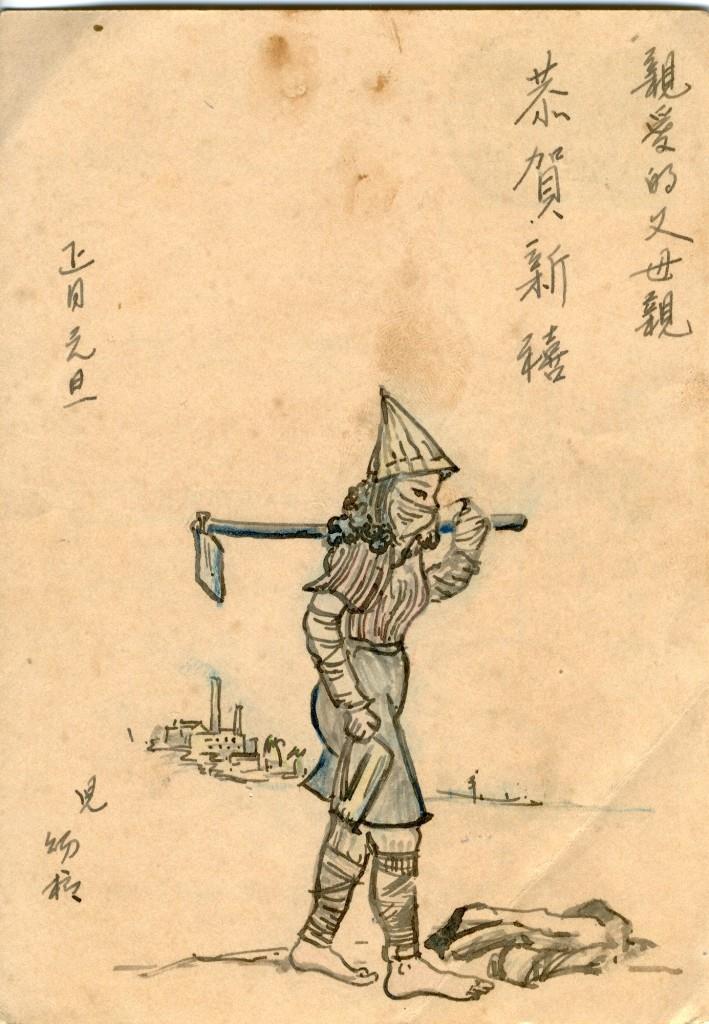 親愛的父母親
恭賀新禧
正月元旦
兒